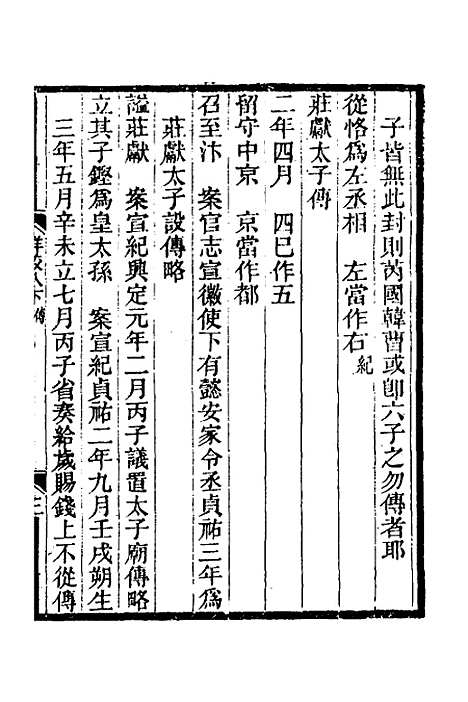 子皆無此封則芮國韓曹或卽六子之勿傳者耶
從恪爲左丞相　左當作右紀
莊獻太子傳
二年四月　四巳作五
留守中京　京當作都
召至汴　案官志宣徽使下有懿安家令丞貞祐三年爲
莊獻太子設傳略
諡莊獻　案宣紀興定元年二月丙子議置太子廟傳略
立其子鏗爲皇太孫　案宣紀貞祐二年九月壬戌朔生
三年五月辛未立七月丙子省奏給歲賜錢上不從傳